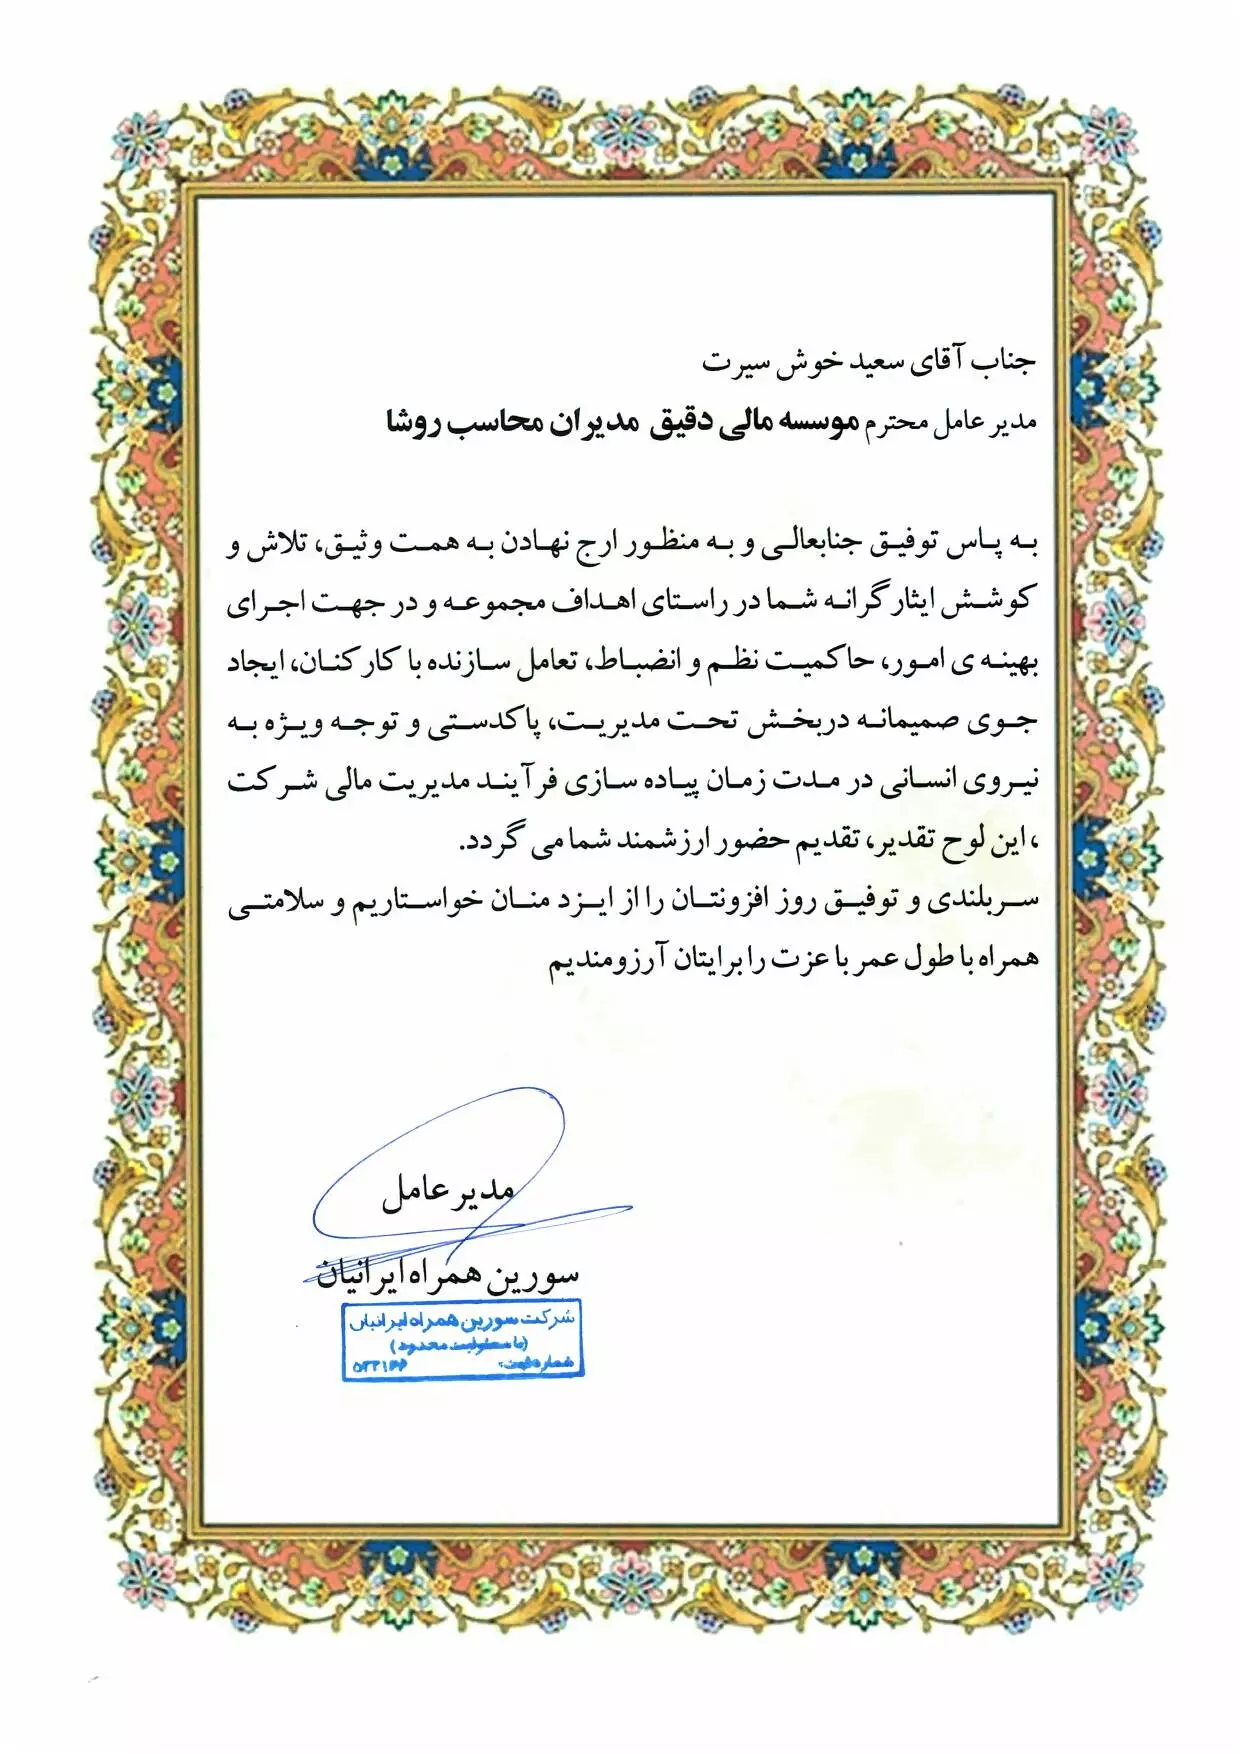 جناب آقای سعید خوش سیرت
مدیر عامل محترم موسسه مالی دقیق مدیران محاسب روشا
به پاس توفیق جنابعالی و به منظور ارج نهادن به همت وثیق، تلاش و
کوشش ایثارگرانه شما در راستای اهداف مجموعه و در جهت اجرای
بهینه ی امور، حاکمیت نظم و انضباط، تعامل سازنده با کارکنان، ایجاد
جوی صمیمانه دربخش تحت مدیریت، پاکدستی و توجه ویژه به
نیروی انسانی در مدت زمان پیاده سازی فرآیند مدیریت مالی شرکت
، این لوح تقدیر، تقدیم حضور ارزشمند شما می گردد.
سربلندی و توفیق روز افزونتان را از ایزد منان خواستاریم و سلامتی
همراه با طول عمر با عزت را برایتان آرزومندیم
مدیر عامل
سورین همراه ایرانیان
شرکت سورین همراه ایرانیان
(با مسئولیت محدود)
شماره ثبت: